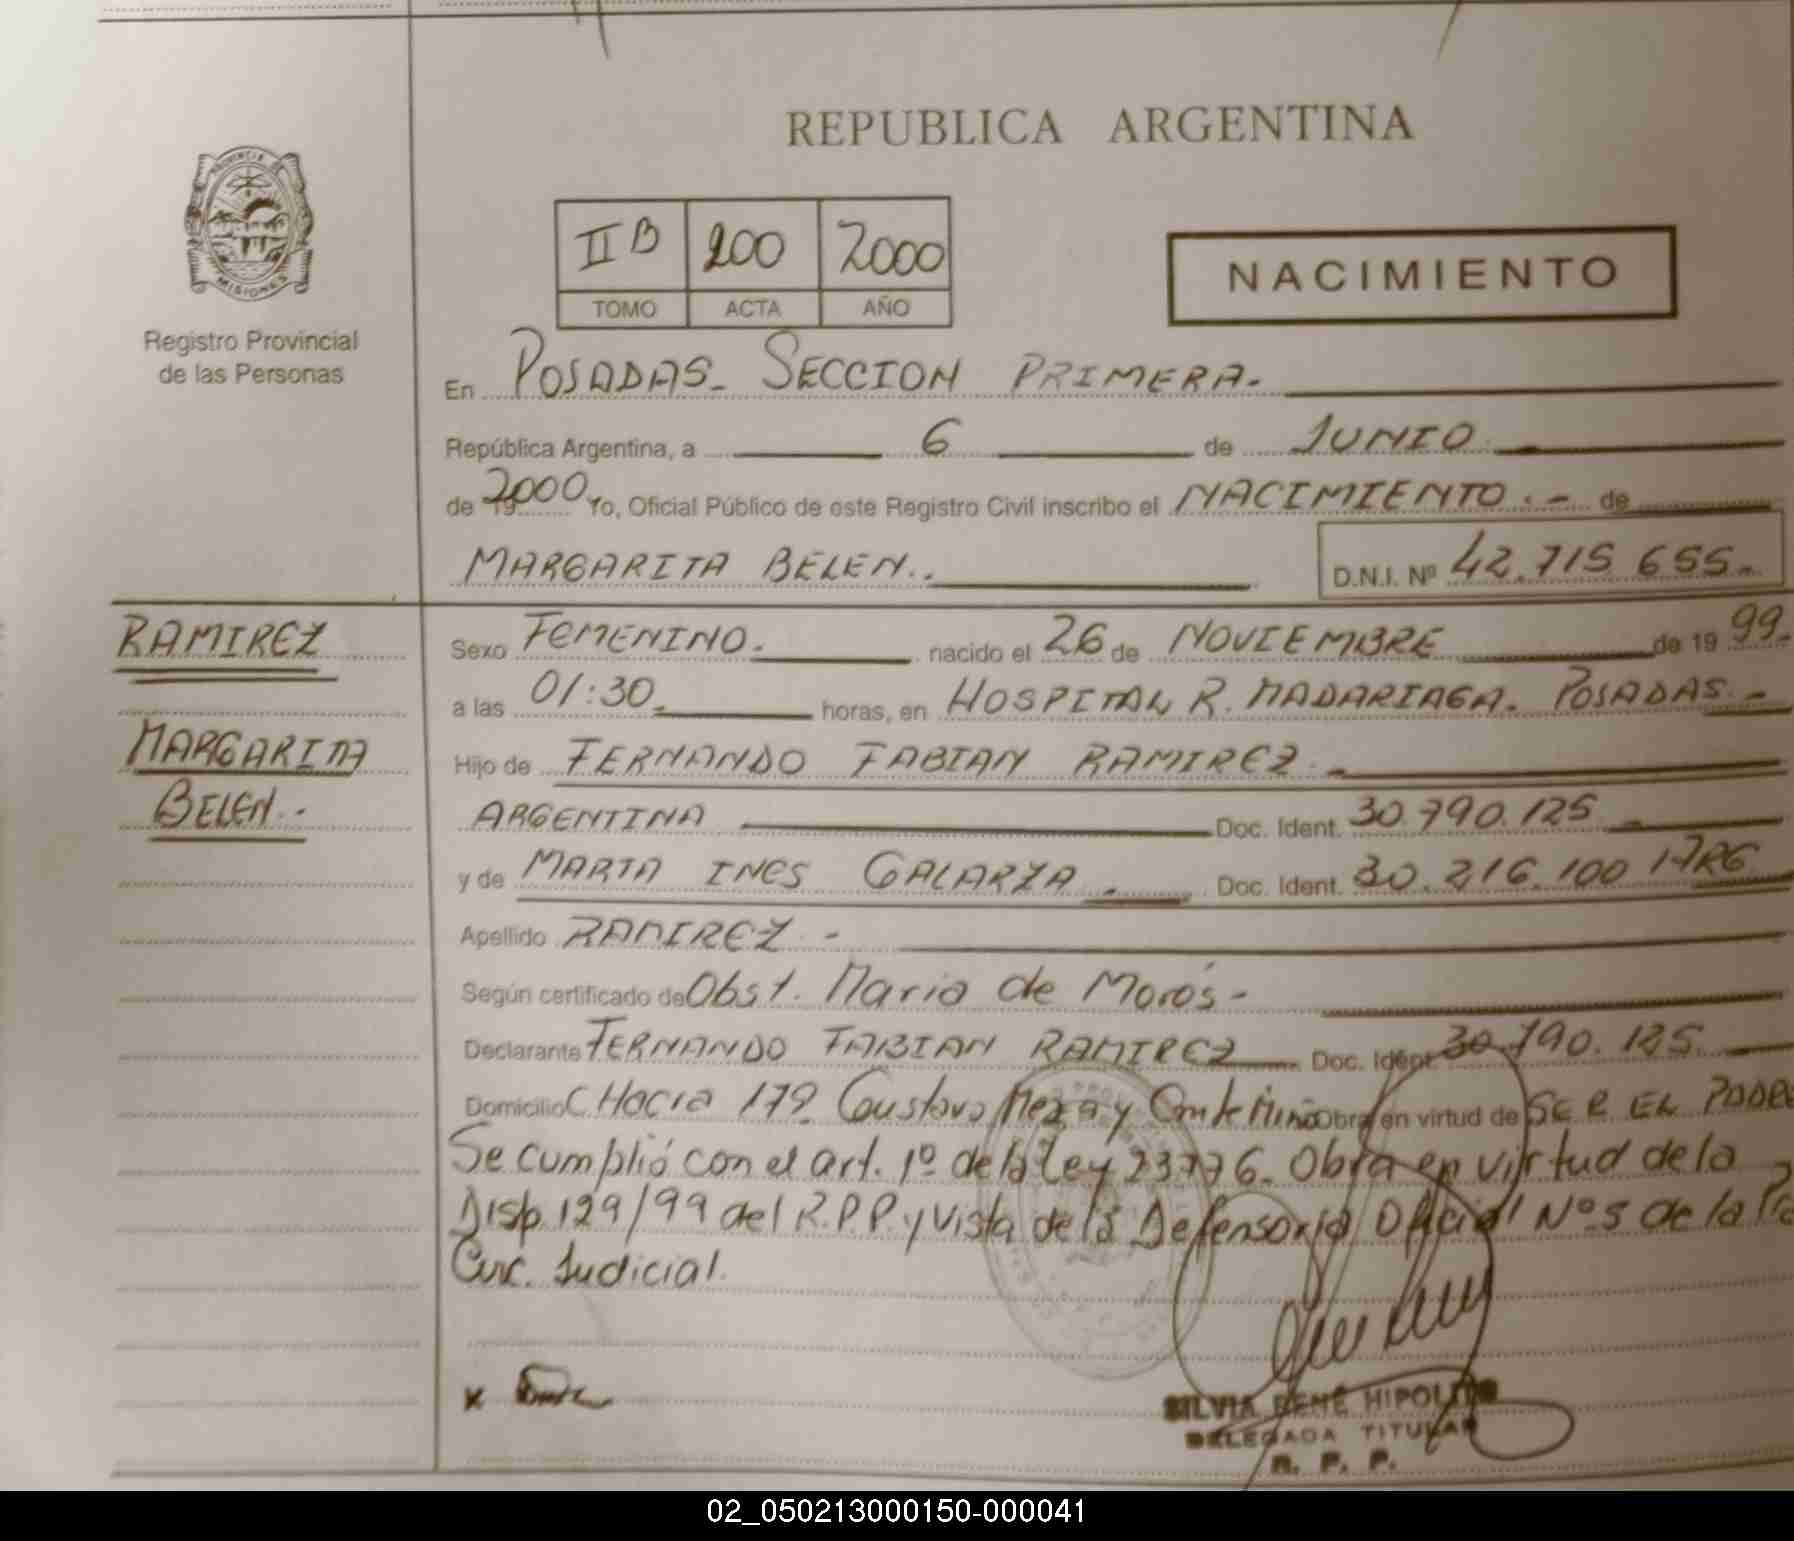 REPUBLICA ARGENTINA
PROVINCIA DE
MISIONES
Registro Provincial
de las Personas
II B 200 2000
TOMO ACTA AÑO
NACIMIENTO
En POSADAS- SECCION PRIMERA.
República Argentina, a 6 de JUNIO
de 19 2000 Yo, Oficial Público de este Registro Civil inscribo el NACIMIENTO.- de
MARGARITA BELEN.. D.N.I. Nº 42.715 655-
RAMIREZ
MARGARITA
BELEN..
Sexo FEMENINO. nacido el 26 de NOVIEMBRE de 19 99.
a las 01:30 horas, en HOSPITAL R. MADARIAGA. POSADAS.-
Hijo de FERNANDO FABIAN RAMIREZ.
ARGENTINA Doc. Ident. 30.790.125
y de MARTA INES GALARZA. Doc. Ident. 30.216.100 ARG
Apellido RAMIREZ.-
Según certificado de Obst. Maria de Morós-
Declarante FERNANDO FABIAN RAMIREZ Doc. Ident. 30.790.125.
Domicilio 179 Gustavo Meza y Obra en virtud de SER EL PADRE
Se cumplió con el art. 1º de la Ley 23776. Obra en virtud de la
Disp. 129/99 del R.P.P. y Vista de la Defensoria Oficial Nº 5 de la
Circ. Judicial.
x
SILVIA RENÉ HIPOLITO
DELEGADA TITULAR
R. P. P.
02_050213000150-000041